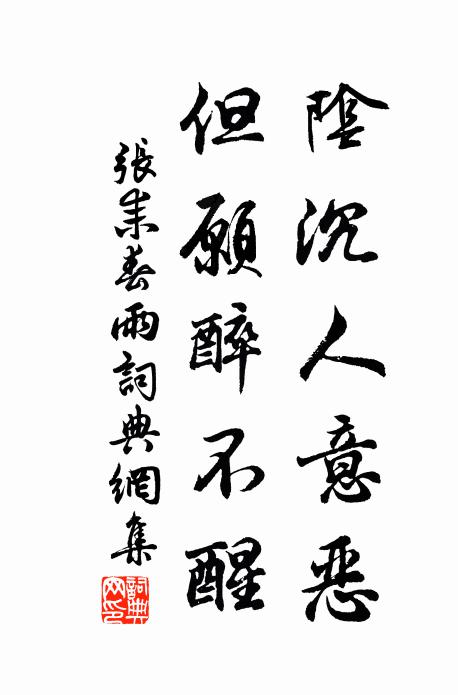 陰沉人意惡
但願醉不醒
張耒春雨詞典網集
詞典網印